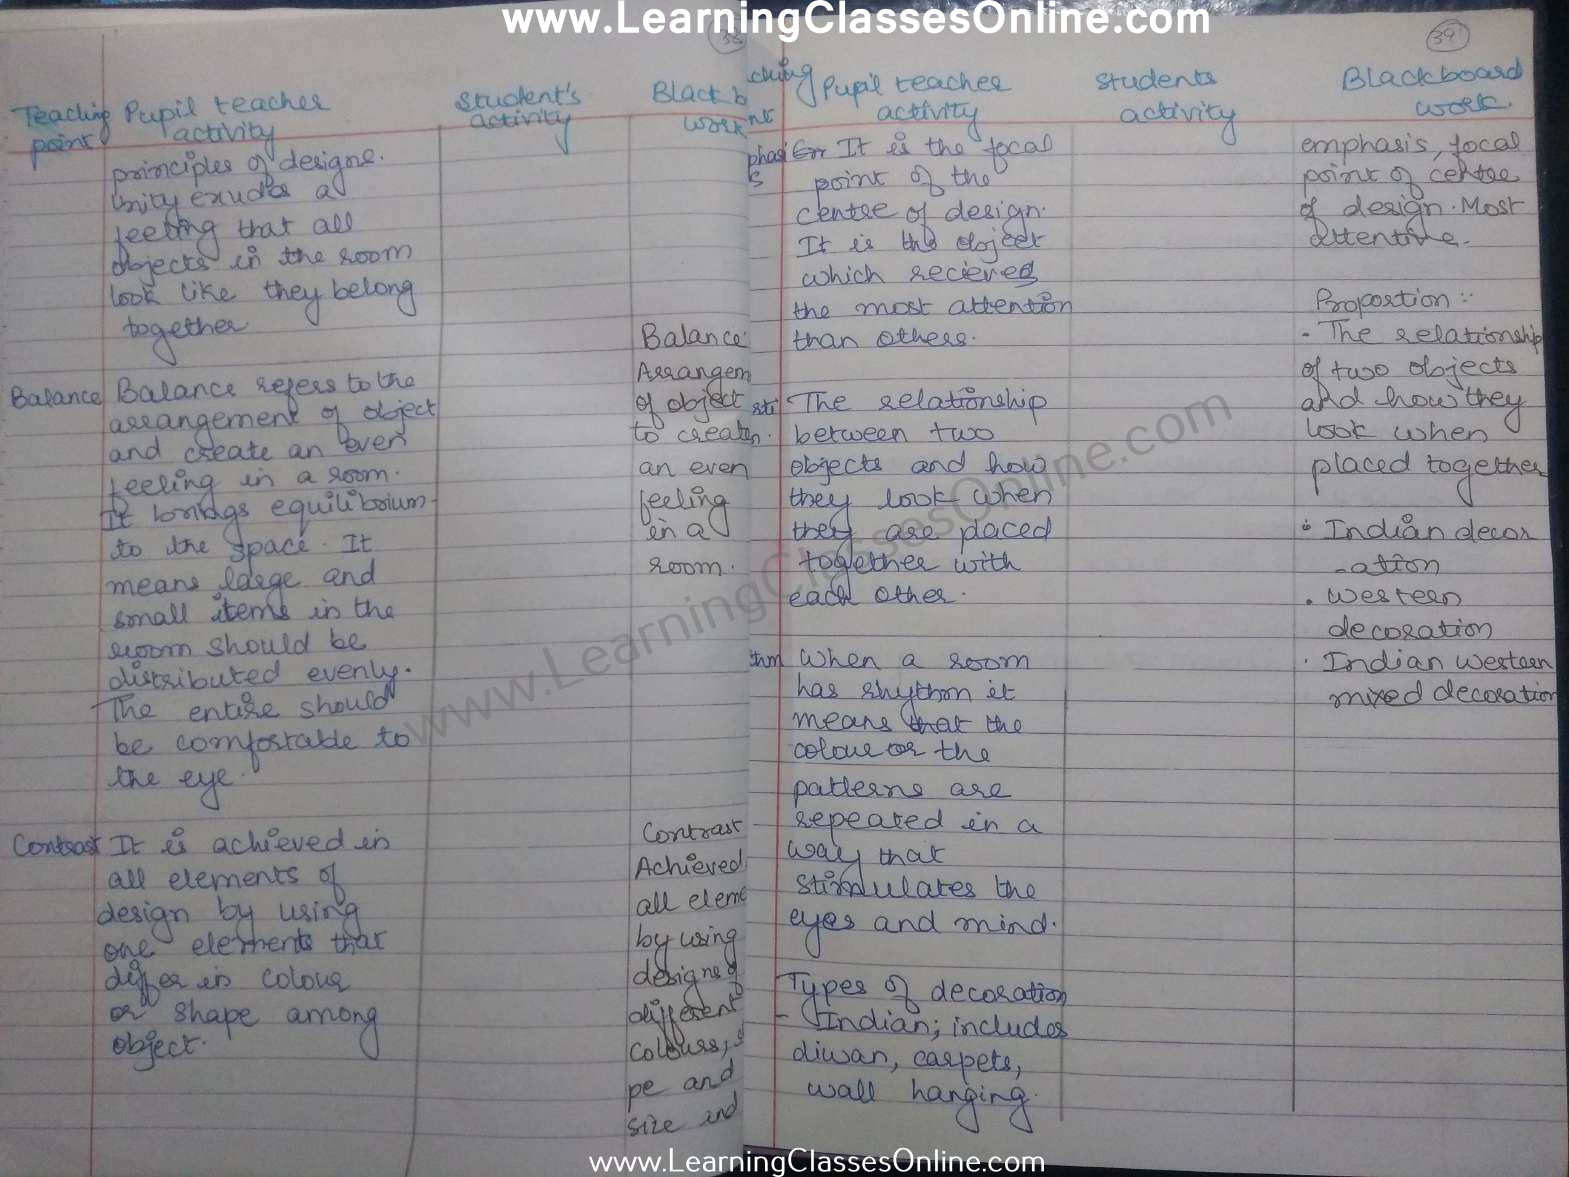 www.LearningClassesOnline.com
38
Teaching point
Pupil teacher activity
Student's activity
Black b
work
principles of designe.
Unity exudes a
feeling that all
objects in the room
look like they belong
together
Balance
Balance refers to the
arrangement of object
and create an even
feeling in a room.
It brings equilibrium
to the space. It
means large and
small items in the
room should be
distributed evenly.
The entire should
be comfortable to
the eye.
Balance:
Arrangem
of object
to create
an even
feeling
in a
room.
Contrast
It is achieved in
all elements of
design by using
one elements that
differ in colour
or shape among
object.
Contrast
Achieved
all eleme
by using
designe
different
colours, s
pe and
size and
39
ching
nt
Pupil teacher
activity
Students
activity
Blackboard
work.
phasi
s
It is the focal
point of the
centre of design.
It is the object
which recieves
the most attention
than others.
emphasis, focal
point of centre
of design. Most
attentive.
The relationship
between two
objects and how
they look when
they are placed
together with
each other.
Proportion :-
- The relationship
of two objects
and how they
look when
placed together
Indian decor
-ation
. Western
decoration
. Indian western
mixed decoration
When a room
has rhythm it
means that the
colour or the
patterns are
repeated in a
way that
stimulates the
eyes and mind.
Types of decoration
- Indian; includes
diwan, carpets,
wall hanging.
www.LearningClassesOnline.com
www.LearningClassesOnline.com